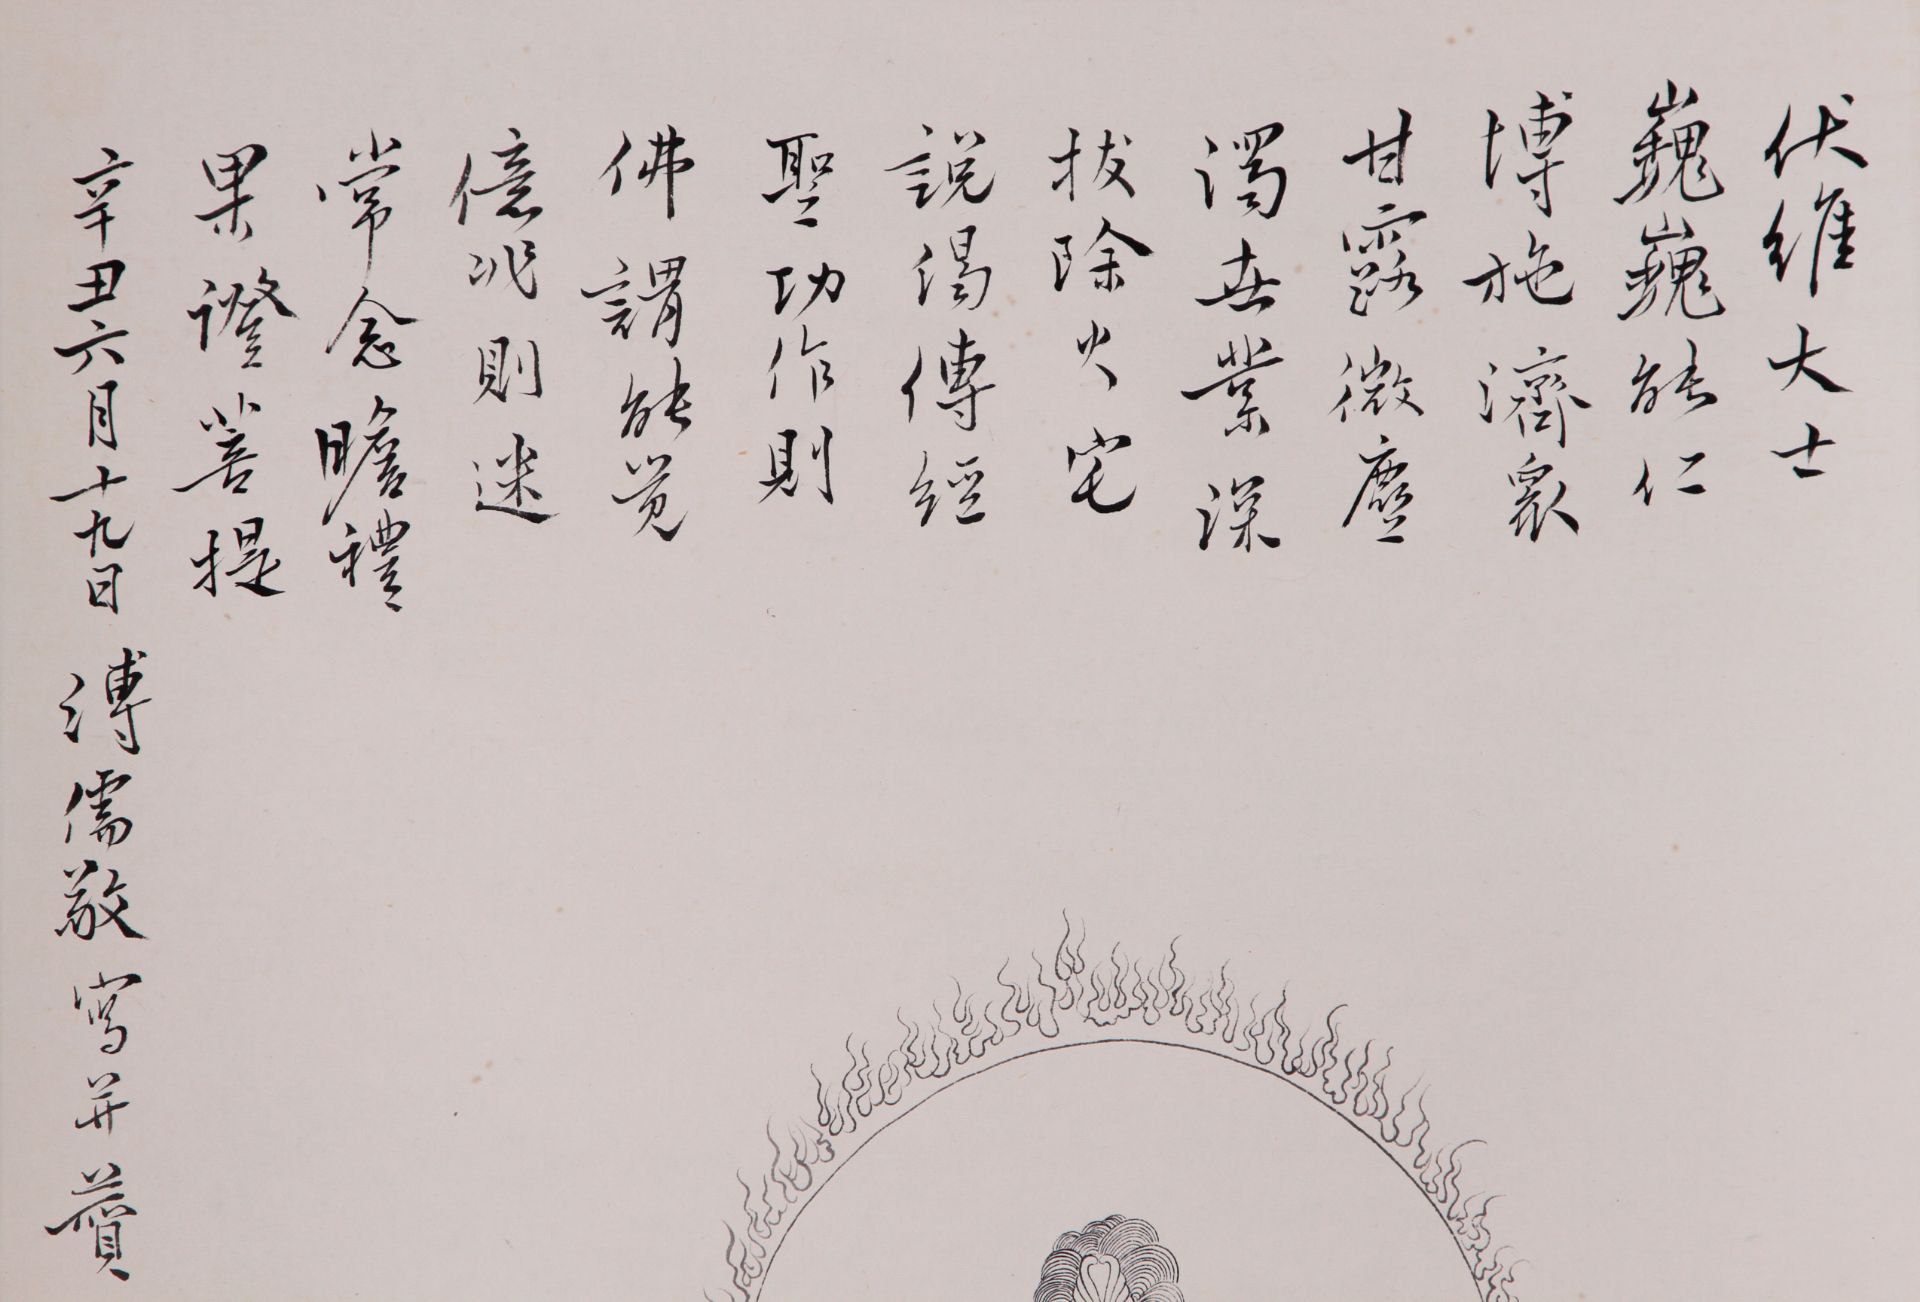 伏維大士
巍巍能仁
博施濟眾
甘露微塵
濁世業深
拔除火宅
說偈傳經
聖功作則
佛謂能覺
億兆則迷
常念瞻禮
果證菩提
辛丑六月十九日溥儒敬寫并贊